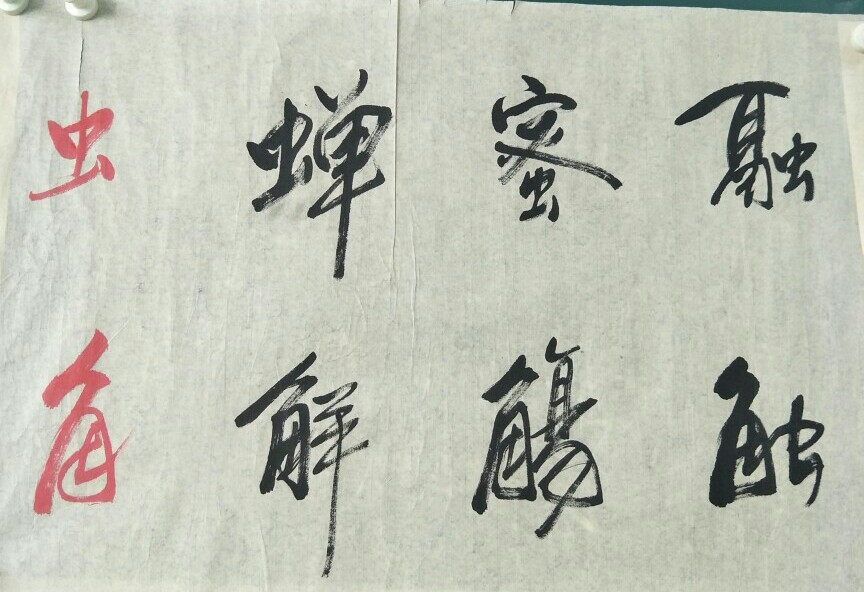 虫 蝉 蜜 融
角 解 觞 触